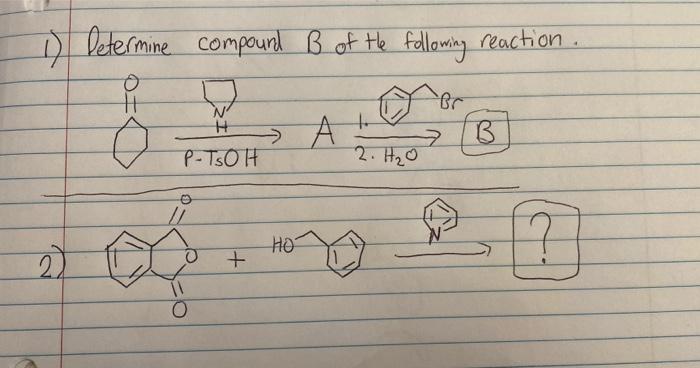 1) Determine compound B of the following reaction.
O
N
H
P-TsOH
A
1.
Br
2. H₂O
B
2)
O
O
O
+
HO
N
?